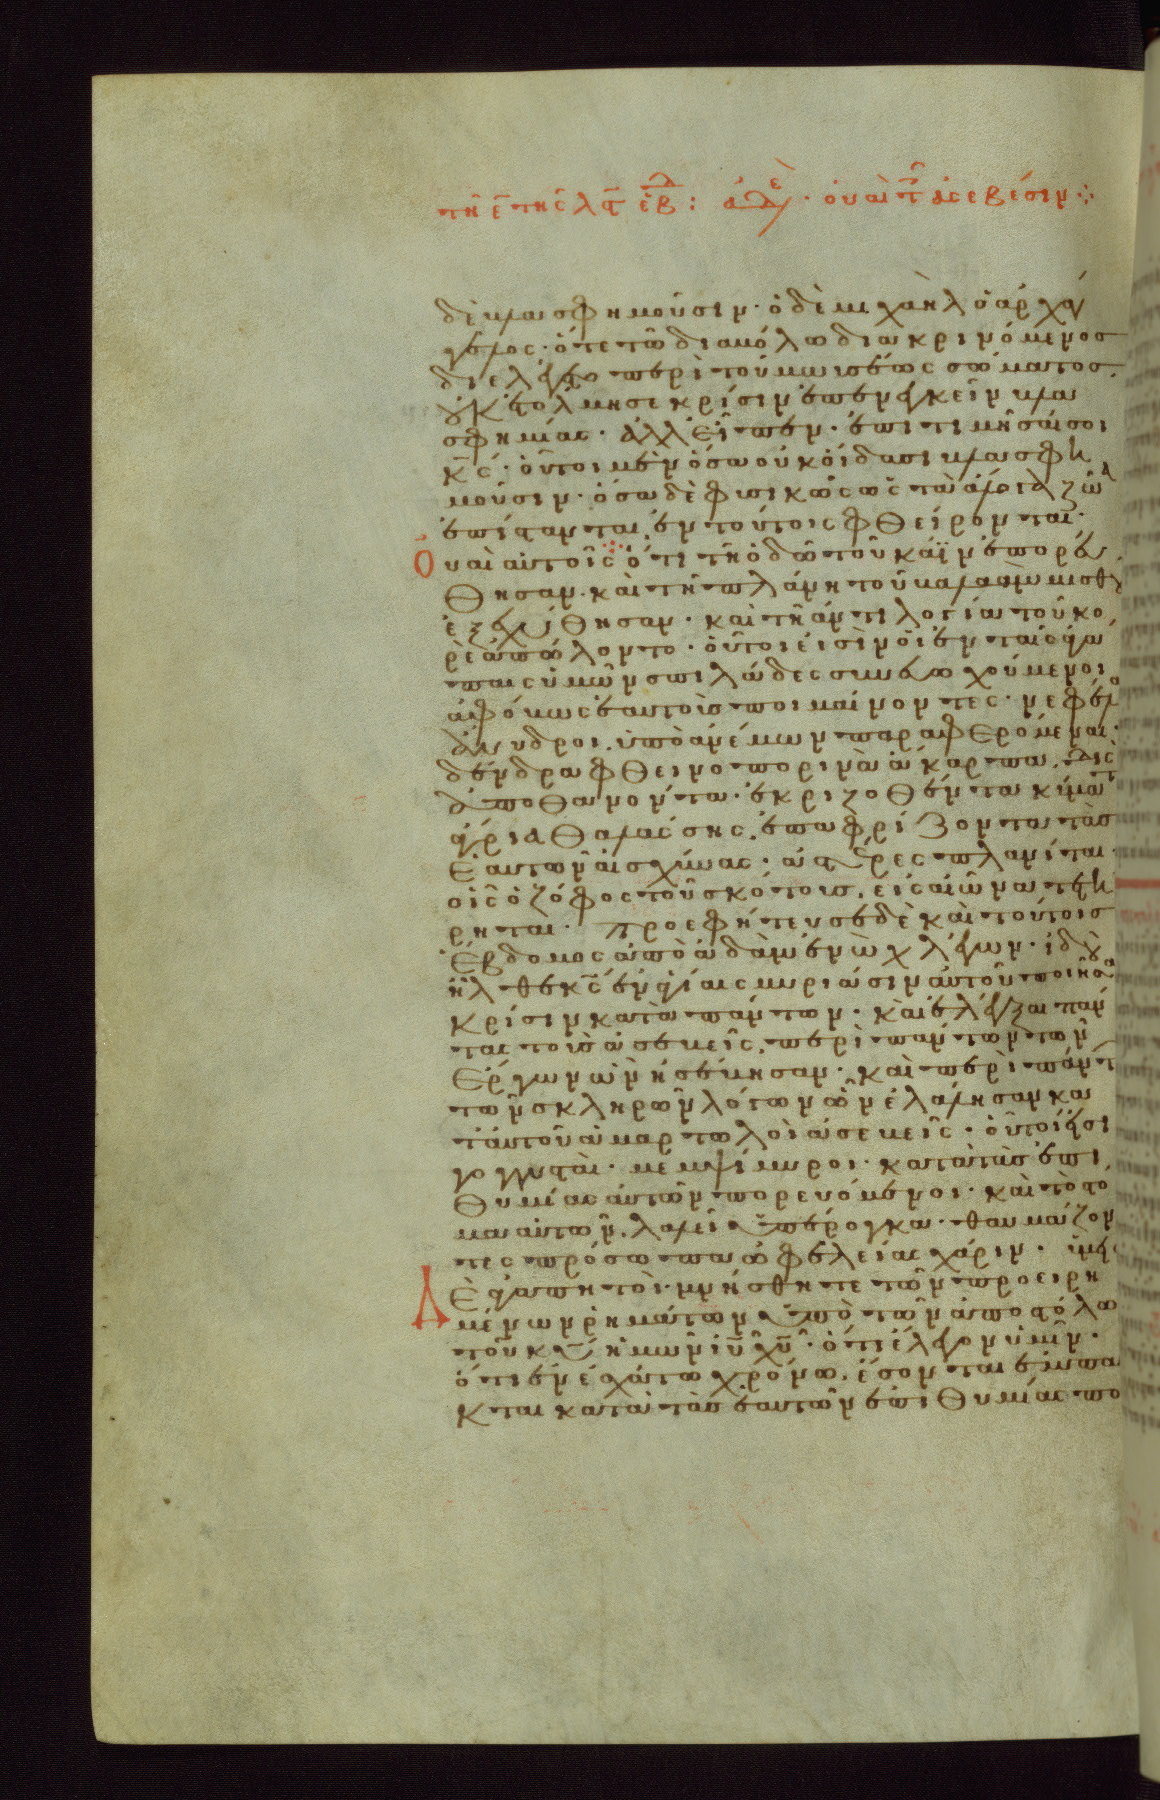 τῆ ε̄ τῆς λϛ ἑβδ : ἀδελ · οὐαὶ τ̄ ἀσεβέσιν
δὲ βλασφημοῦσιν · ὁ δὲ μιχαὴλ ὁ ἀρχάγ
γελος · ὅτε τῶ διαβόλω διακρινόμενος
διελέγετο περὶ τοῦ μωϊσέως σώματος ·
οὐκ ἐτόλμησε κρίσιν ἐπενεγκεῖν βλα
σφημίας · ἀλλ' εἶπεν · ἐπιτιμῆσαι σοι
κ̄ς · οὗτοι μὲν ὅσα οὐκ οἴδασι βλασφη
μοῦσιν · ὅσα δὲ φυσικῶς ὡς τὰ ἄλογα ζῶα
ἐπίστανται ἐν τούτοις φθείρονται ·
Οὐαὶ αὐτοῖς ὅτι τῆ ὁδῶ τοῦ κάϊν ἐπορεύ
θησαν · καὶ τῆ πλάνη τοῦ βαλαὰμ μισθοῦ
ἐξεχύθησαν · καὶ τῆ ἀντιλογία τοῦ κο
ρὲ ἀπώλοντο · οὗτοι εἰσὶν οἱ ἐν ταῖς ἀγά
παις ὑμῶν σπιλάδες συνευωχούμενοι
ἀφόβως ἑαυτοὺς ποιμαίνοντες · νεφέλαι
ἄνυδροι · ὑπὸ ἀνέμων παραφερόμεναι ·
δένδρα φθεινοπορινὰ ἄκαρπα · δὶς
ἀποθανόντα · ἐκριζοθέντα κύματα
ἄγρια θαλάσσης · ἐπαφρίζοντα τὰς
ἑαυτῶν αἰσχύνας · ἀστέρες πλανῖται ·
οἷς ὁ ζόφος τοῦ σκότους · εἰς αἰῶνα τετή
ρηται · Προεφήτευσε δὲ καὶ τούτοις
ἕβδομος ἀπὸ ἀδὰμ ἐνὼχ λέγων · ἰδοὺ
ἦλθε κ̄ς ἐν ἁγίαις μυριάσιν αὐτοῦ ποιῆσαι
κρίσιν κατὰ πάντων · καὶ ἐλέγξαι πάν
τας τοὺς ἀσεβεῖς · περὶ πάντων τῶν
ἔργων ὧν ἠσέβησαν · καὶ περὶ πάντ
τῶν σκληρῶν λόγων ὧν ἐλάλησαν κα
τ' αὐτοῦ ἁμαρτωλοὶ ἀσεβεῖς · οὗτοί εἰσι
γογγυσταὶ · μεμψίμυροι · κατὰ τὰς ἐπι
θυμίας αὐτῶν πορευόμενοι · καὶ τὸ στό
μα αὐτῶν λαλεῖ ὑπέρογκα · θαυμάζον
τες πρόσωπα ὠφελείας χάριν · ὑμεῖς
Ἀ ἀγαπητοὶ · μνήσθητε τῶν προειρη
μένων ῥημάτων ὑπὸ τῶν ἀποστόλω
τοῦ κ̄υ ἡμῶν ῑυ χ̄υ · ὅτι ἔλεγον ὑμῖν ·
ὅτι ἐν ἐσχάτω χρόνω · ἔσονται ἐμπαῖ
κται κατὰ τὰς ἑαυτῶν ἐπιθυμίας πο